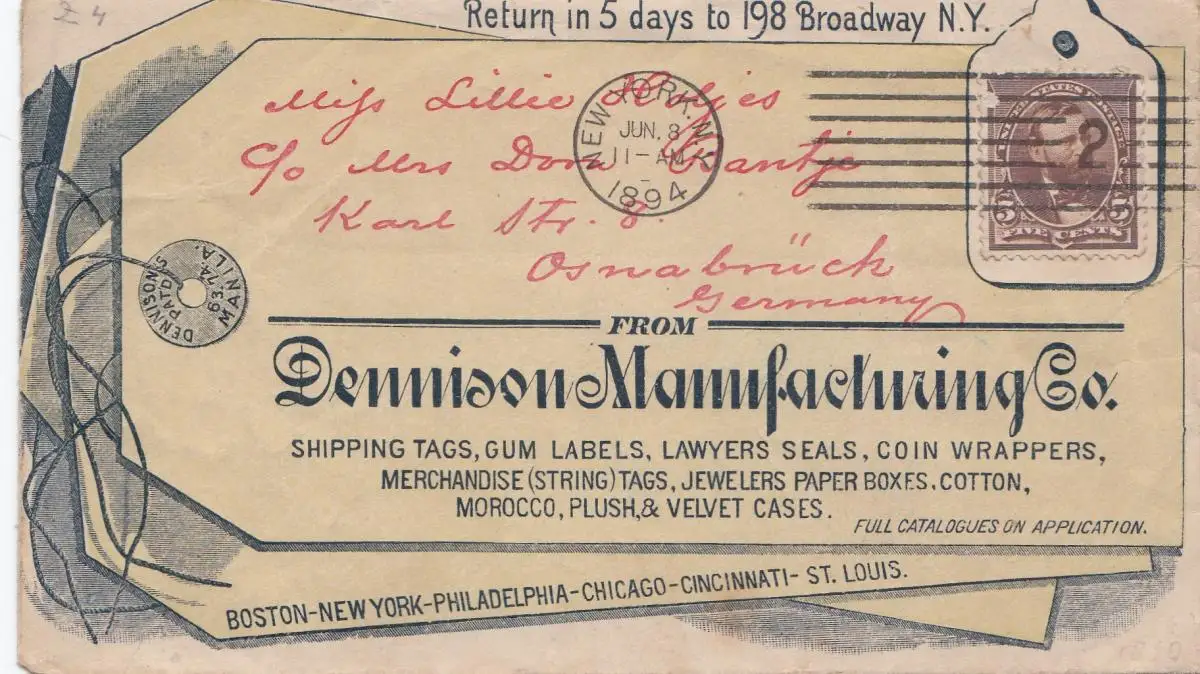 24
Return in 5 days to 198 Broadway N.Y.
Miss Lillie
c/o Mrs Dora
Karl Str. 8.
Osnabrück
Germany
NEW YORK, N.Y.
JUN. 8
11-AM
1894
2
UNITED STATES POSTAGE
5 5
FIVE CENTS
DENNISON'S
PATD
63,74
MANILA.
FROM
Dennison Manufacturing Co.
SHIPPING TAGS, GUM LABELS, LAWYERS SEALS, COIN WRAPPERS,
MERCHANDISE (STRING) TAGS, JEWELERS PAPER BOXES. COTTON,
MOROCCO, PLUSH, & VELVET CASES.
FULL CATALOGUES ON APPLICATION.
BOSTON-NEW YORK-PHILADELPHIA-CHICAGO-CINCINNATI- ST. LOUIS.